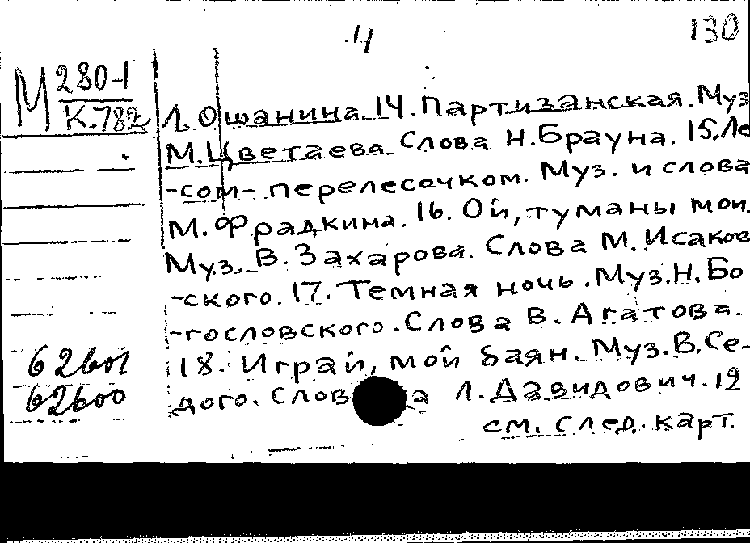 4
130
М 280-1
К.782
Л. Ошанина 14. Партизанская. Муз
М. Цветаева Слова Н. Брауна. 15. Ле
-сом- перелесочком. Муз. и слова
М. Фрадкина. 16. Ой, туманы мои.
Муз. В. Захарова. Слова М. Исаков
-ского. 17. Темная ночь. Муз. Н. Бо
-гословского. Слова В. Агатова.
18. Играй, мой баян. Муз. В. Се-
дого. Слов а Л. Давидович. 19
см. след. карт.
62601
62600